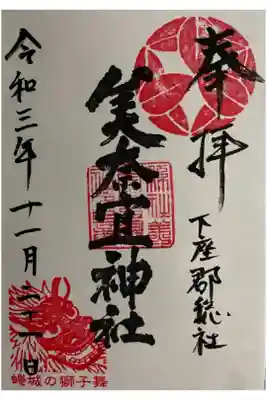 奉拝
下座郡総社
美奈宜神社
令和三年十一月二十一日
蜷城の獅子舞